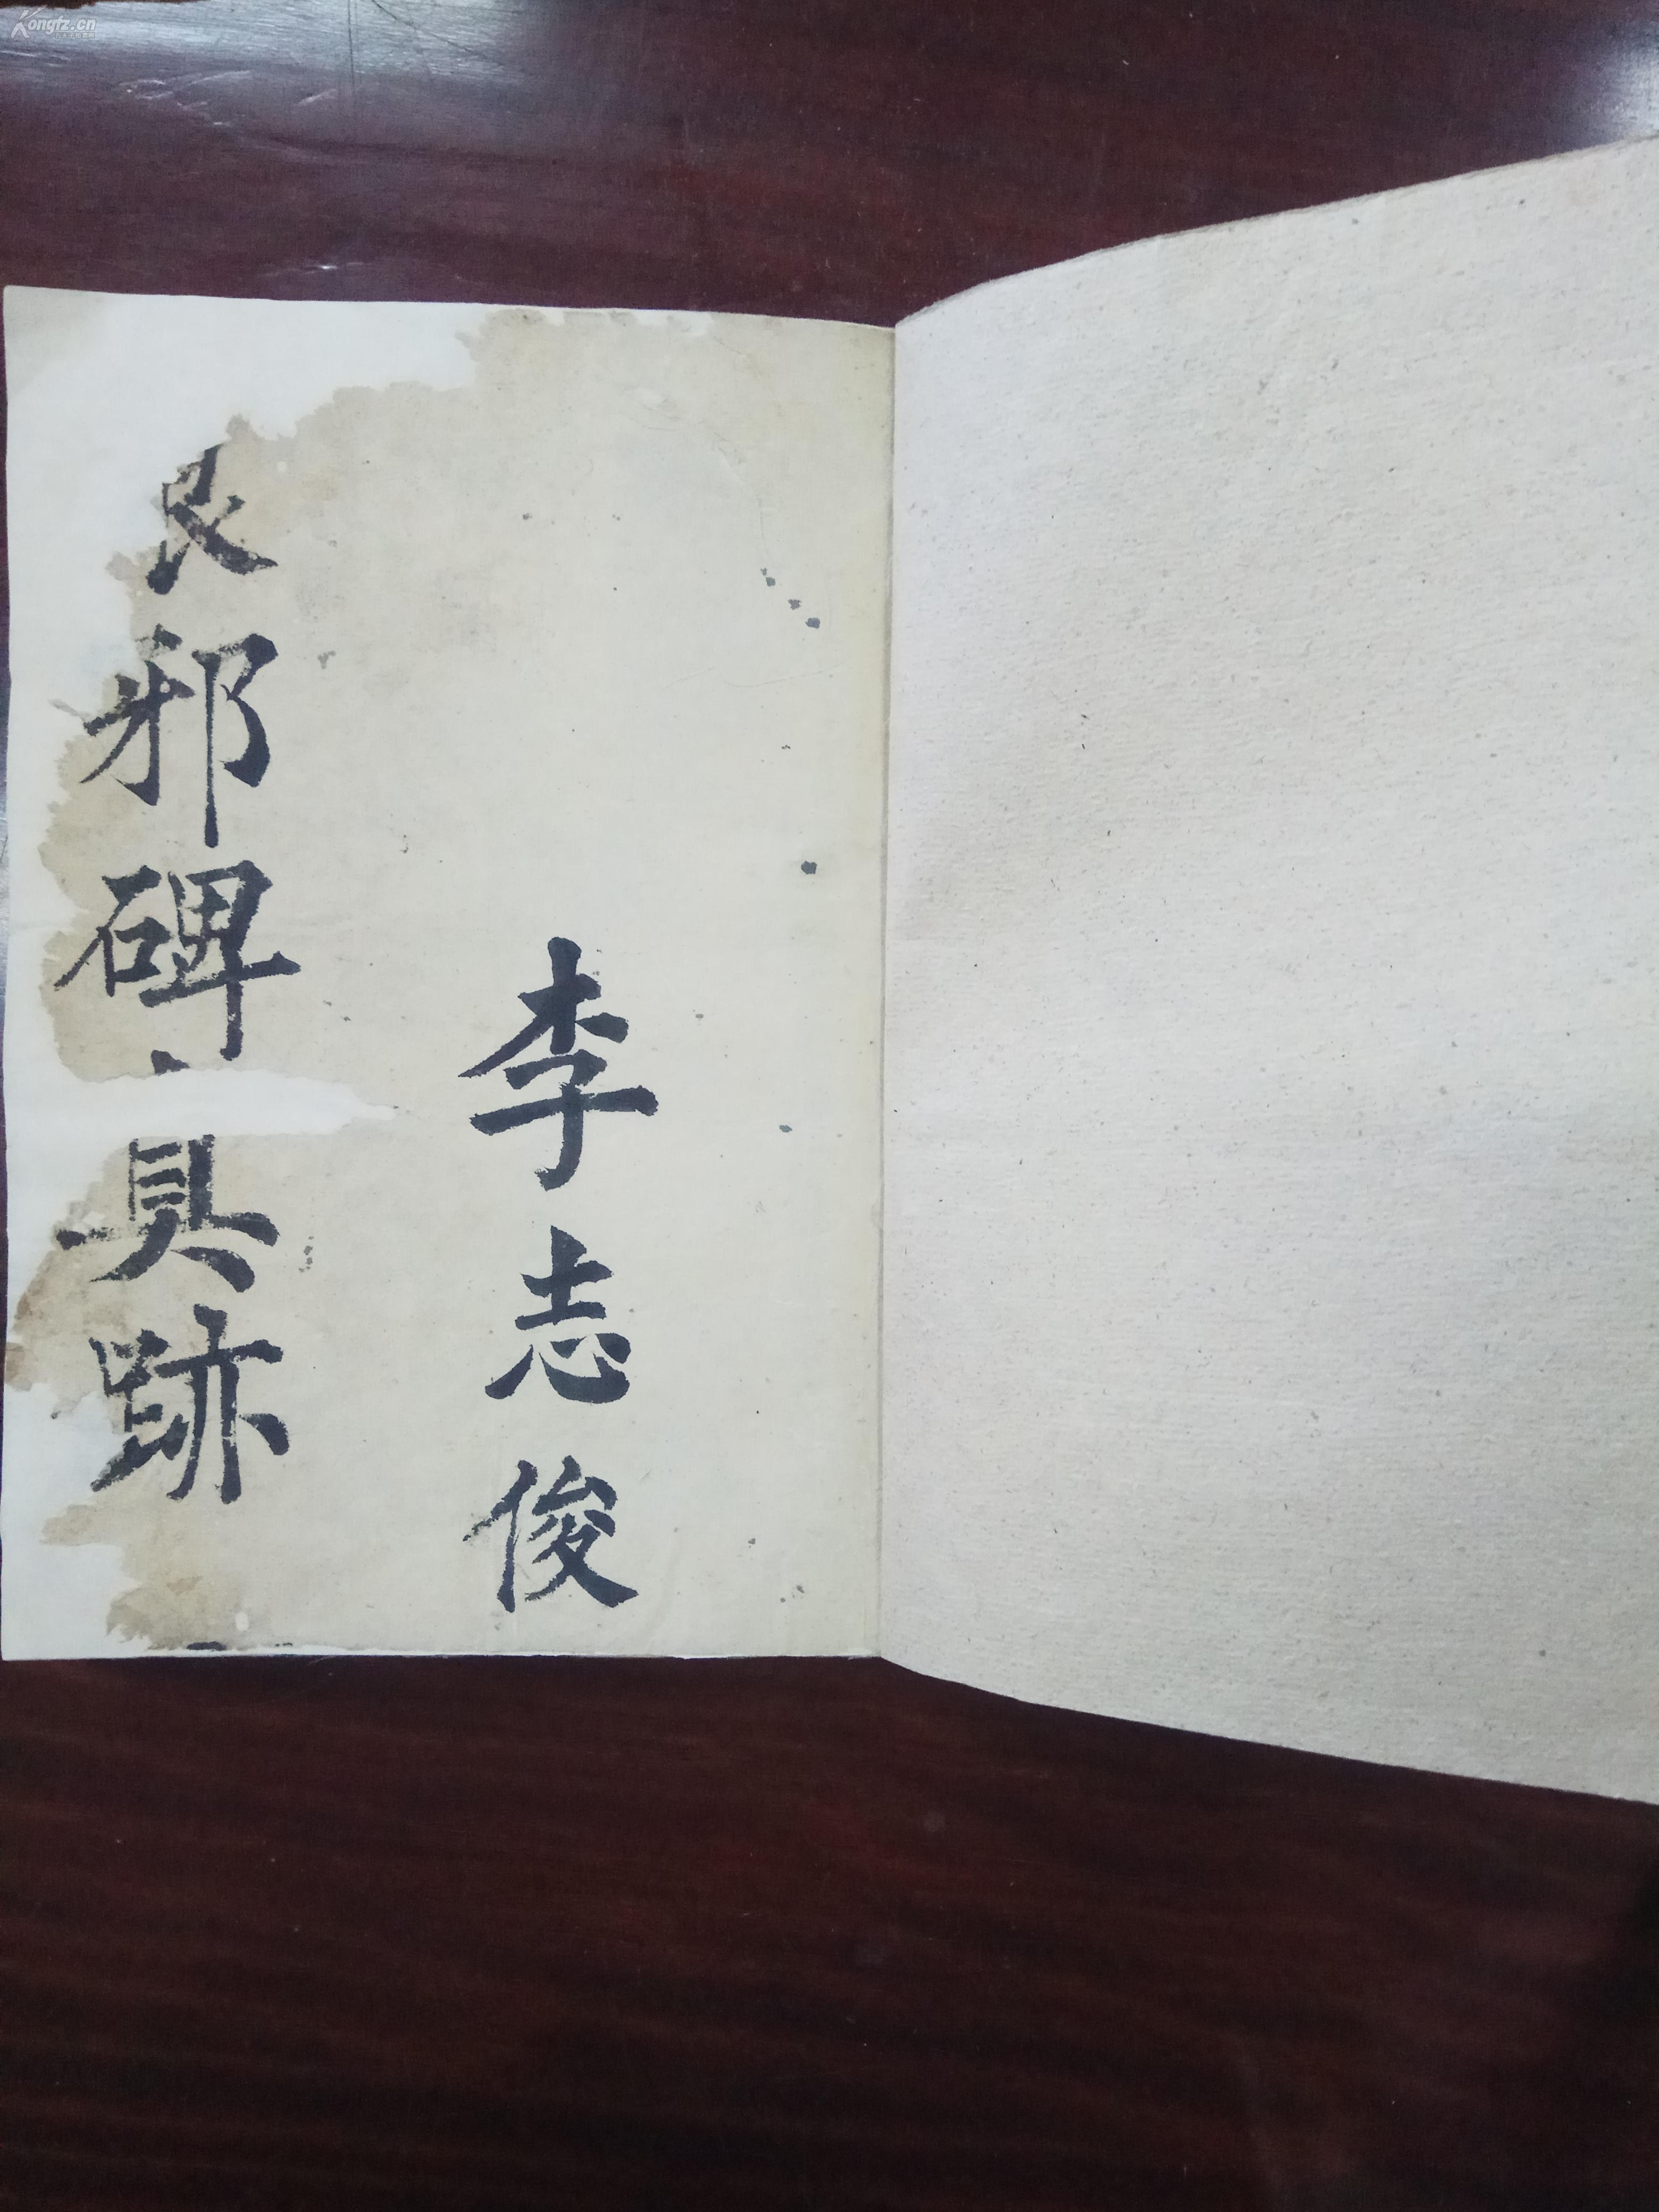 Kongfz.cn
李志俊
邪碑真跡